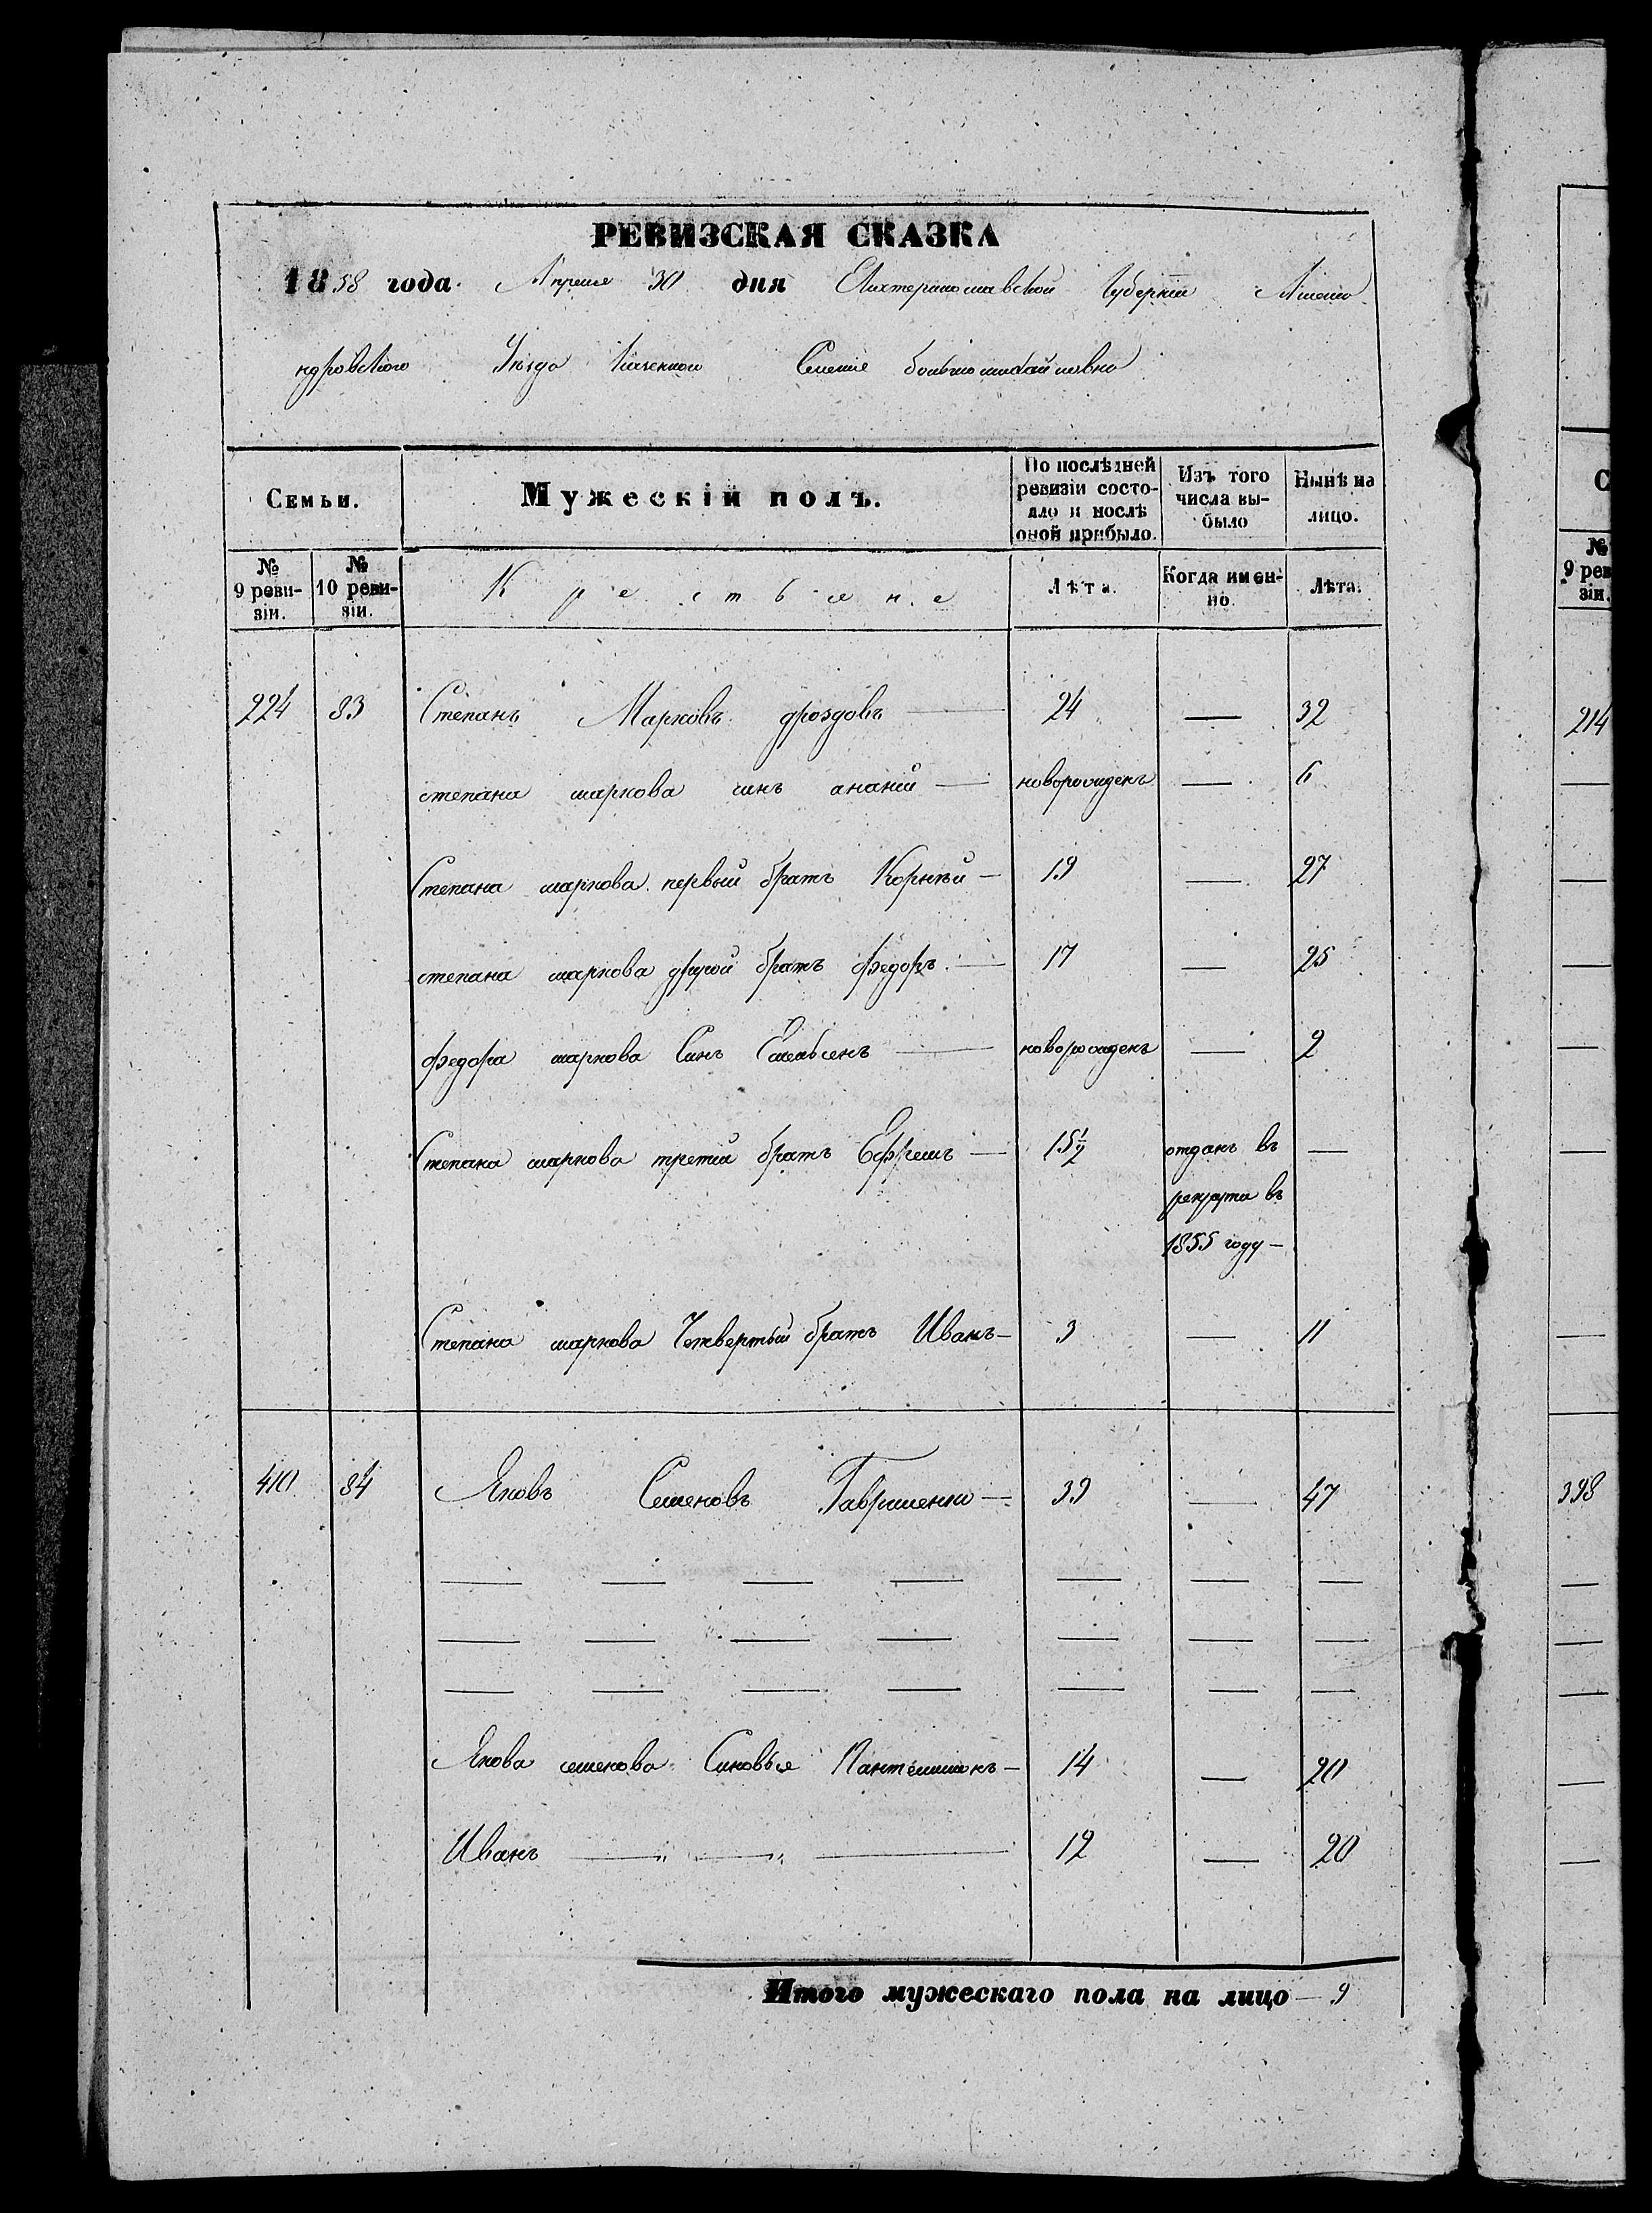 РЕВИЗСКАЯ СКАЗКА
1858 года Апреля 30 дня Екатеринославской Губернии Алекса
ндровского Уезда Казенного Селение
Семьи. Мужескій полъ. По послѣдней ревизіи состояло и послѣ оной прибыло. Изъ того числа выбыло Нынѣ на лицо.
№ 9 ревизіи. № 10 ревизіи. Крестьяне Лѣта. Когда именно. Лѣта.
224 83 Степанъ Марковъ дроздовъ — 24 — 32
степана маркова синъ ананий — новорожденъ — 6
Степана маркова первый братъ Корнѣй — 19 — 27
степана маркова другой братъ федоръ — 17 — 25
федора маркова Синъ — новорожденъ — 2
Степана маркова третий братъ Ефремъ — 15½ отданъ въ —
рекрута въ
1855 году —
Степана маркова Четвертый братъ Иванъ — 3 — 11
410 84 Яковъ Семеновъ Гавриленко — 39 — 47
— — — — — — —
— — — — — — —
— — — — — — —
Якова семенова Сыновья Пантелимонъ — 14 — 20
Иванъ — „ — „ — 12 — 20
Итого мужескаго пола на лицо — 9
С
№
9 рев
зіи.
214
—
—
—
—
—
—
398
—
—
—
—
—